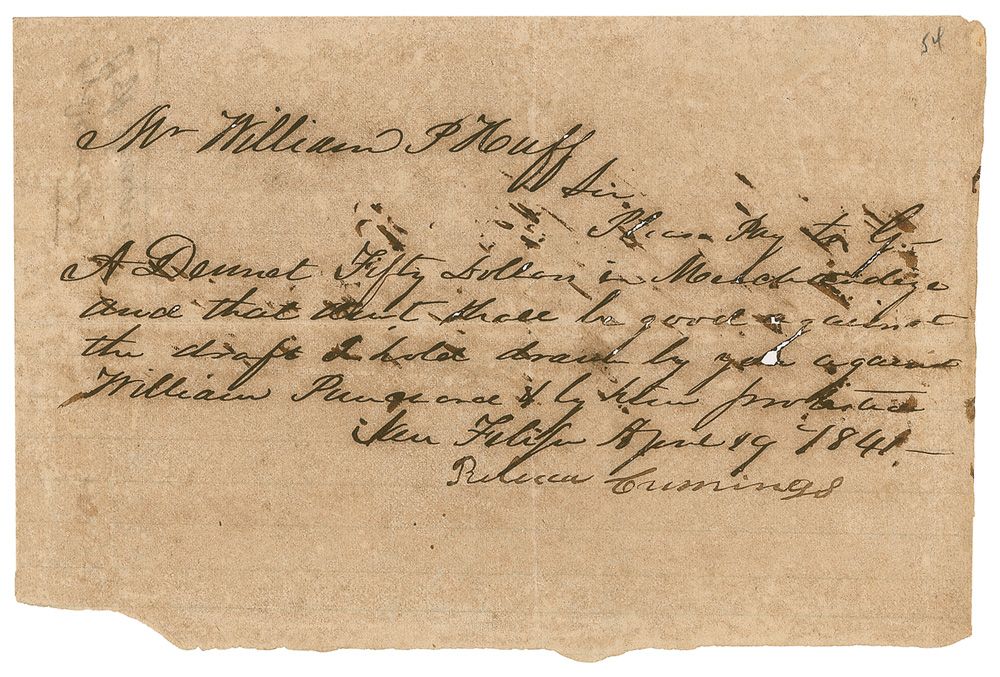 54
Mr William P Huff
Sir
Please Pay to G
A Dennet Fifty Dollars in Merchandize
and that amt shall be good against
the draft I hold drawn by you against
William and by him protested
San Felipe April 19 1841
Rebecca Cumings